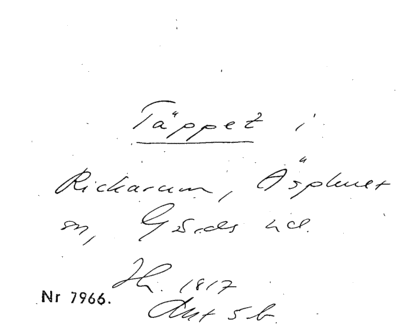 Täppet i
Rickarum, Äsphult
sn, Gärds hd.
Jh. 1817
Akt 5 b.
Nr 7966.